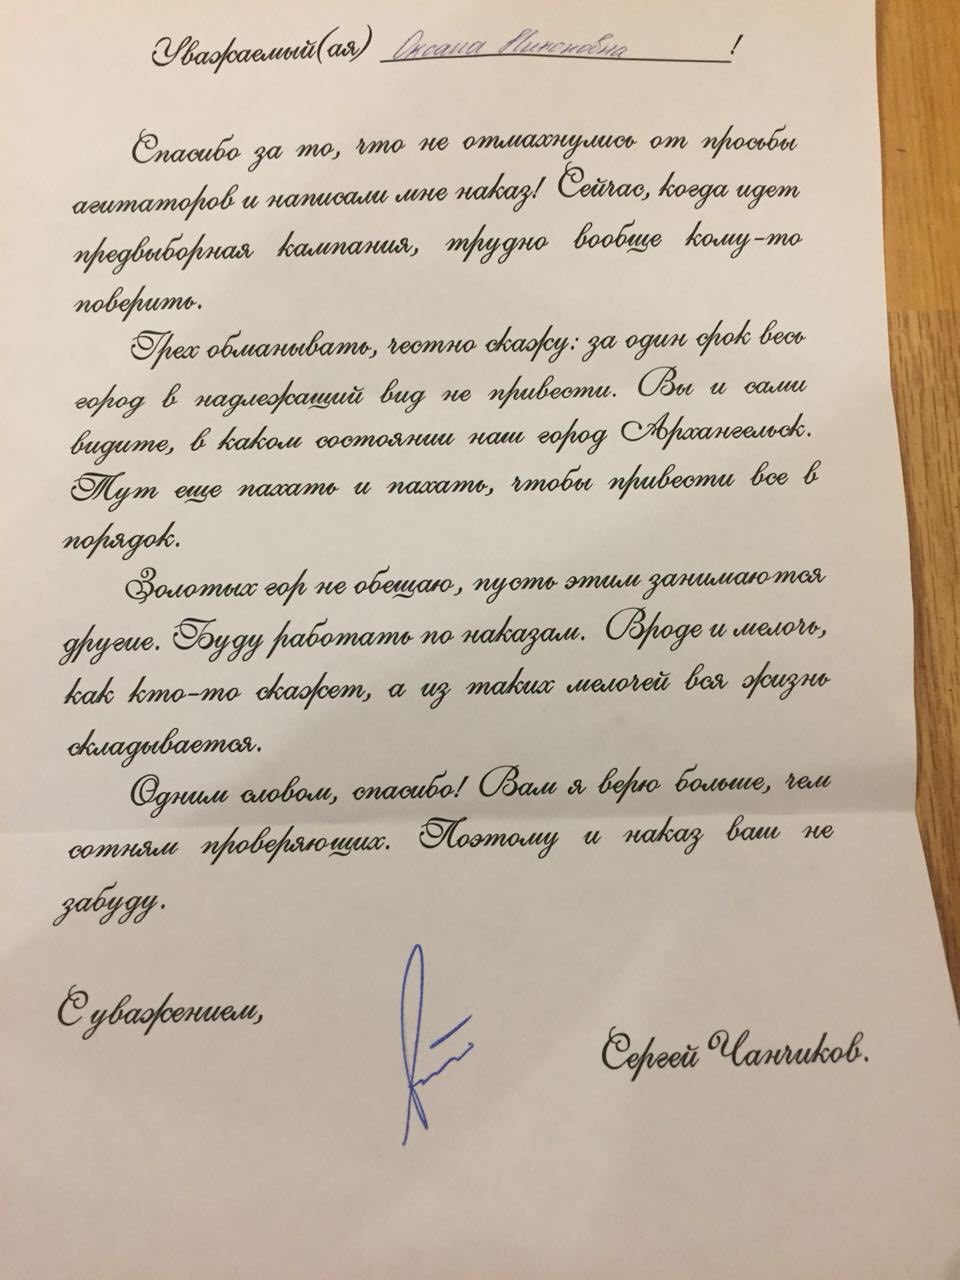 Уважаемый(ая) Оксана Никоновна!
Спасибо за то, что не отмахнулись от просьбы
агитаторов и написали мне наказ! Сейчас, когда идет
предвыборная кампания, трудно вообще кому-то
поверить.
Грех обманывать, честно скажу: за один срок весь
город в надлежащий вид не привести. Вы и сами
видите, в каком состоянии наш город Архангельск.
Тут еще пахать и пахать, чтобы привести все в
порядок.
Золотых гор не обещаю, пусть этим занимаются
другие. Буду работать по наказам. Вроде и мелочь,
как кто-то скажет, а из таких мелочей вся жизнь
складывается.
Одним словом, спасибо! Вам я верю больше, чем
сотням проверяющих. Поэтому и наказ ваш не
забуду.
С уважением,
Сергей Чанчиков.